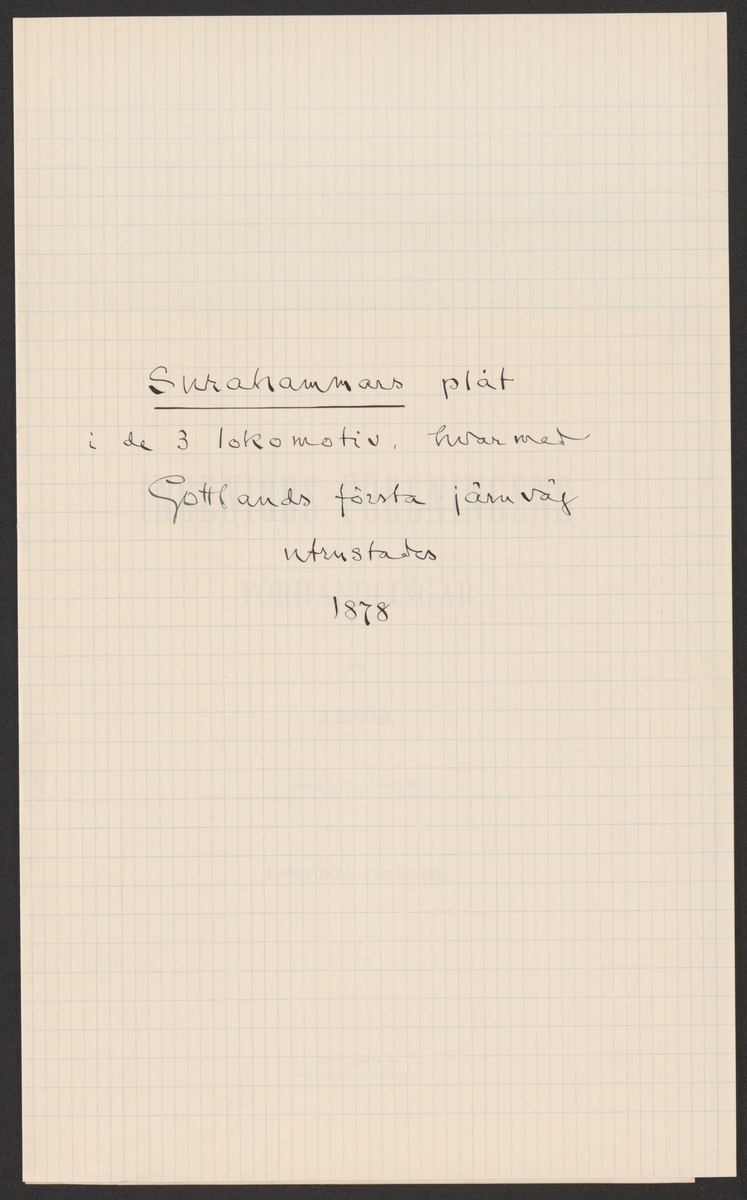 Surahammars plåt
i de 3 lokomotiv, hvarmed
Gottlands första järnväg
utrustades
1878
FÖRHANDLINGAR
1879.